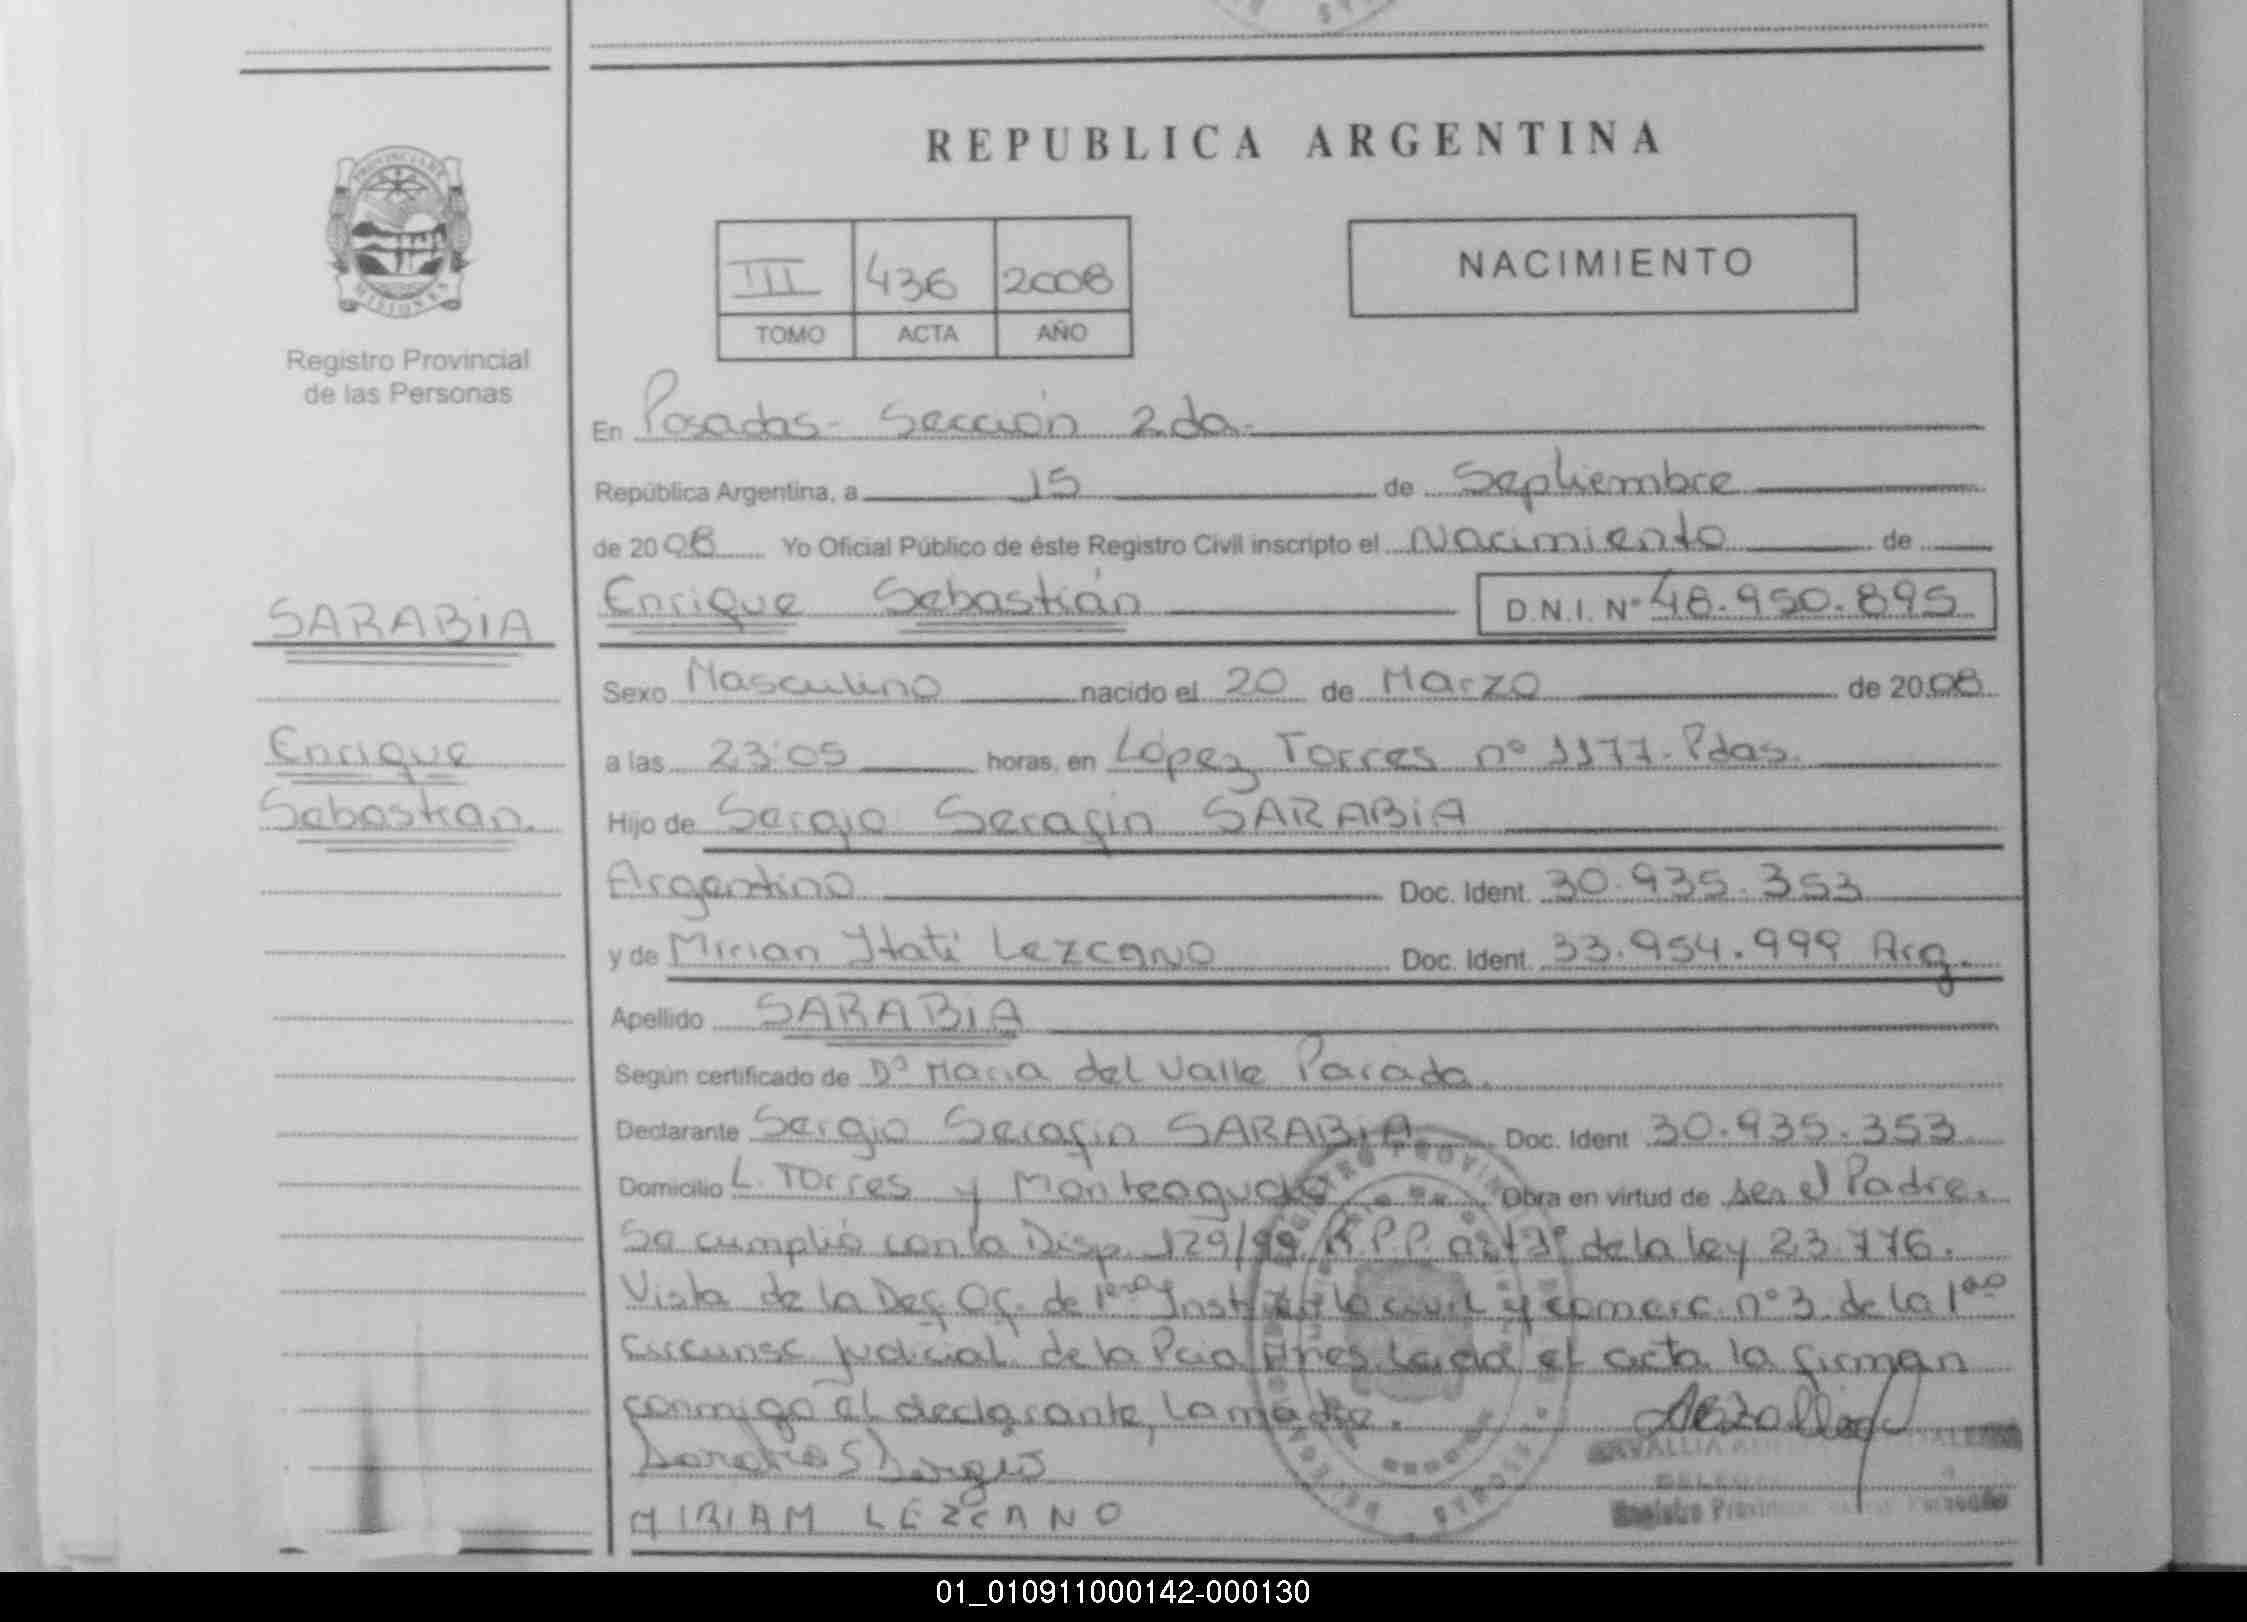 REPUBLICA ARGENTINA
PROVINCIA DE
MISIONES
Registro Provincial
de las Personas
III 436 2008
TOMO ACTA AÑO
NACIMIENTO
En Posadas- Sección 2da.
República Argentina, a 15 de Septiembre
de 2008 Yo Oficial Público de éste Registro Civil inscripto el Nacimiento de
SARABIA
Enrique Sebastián D.N.I. Nº 48.950.895
Sexo Masculino nacido el 20 de Marzo de 2008
Enrique
a las 23:05 horas, en López Torres nº 1177. Pdas.
Sebastian.
Hijo de Sergio Serafín SARABIA
Argentino Doc. Ident. 30.935.353
y de Mirian Itatí Lezcano Doc. Ident. 33.954.999 Arg.
Apellido SARABIA
Según certificado de Dª Maria del Valle Parada.
Declarante Sergio Serafin SARABIA Doc. Ident 30.935.353
Domicilio L. Torres y Monteagudo Obra en virtud de ser el Padre.
Se cumplió con la Disp. 129/99 R.P.P. art 3º de la ley 23.776.
Vista de la Def. Of. de 1era Inst. en lo civil y comerc. nº 3 de la 1era
circunsc judicial de la Pcia Mnes. Leida el acta la firman
conmigo el declarante, la madre.
Sarabia S Sergio
MIRIAM LEZCANO
Registro Provincial
01_010911000142-000130